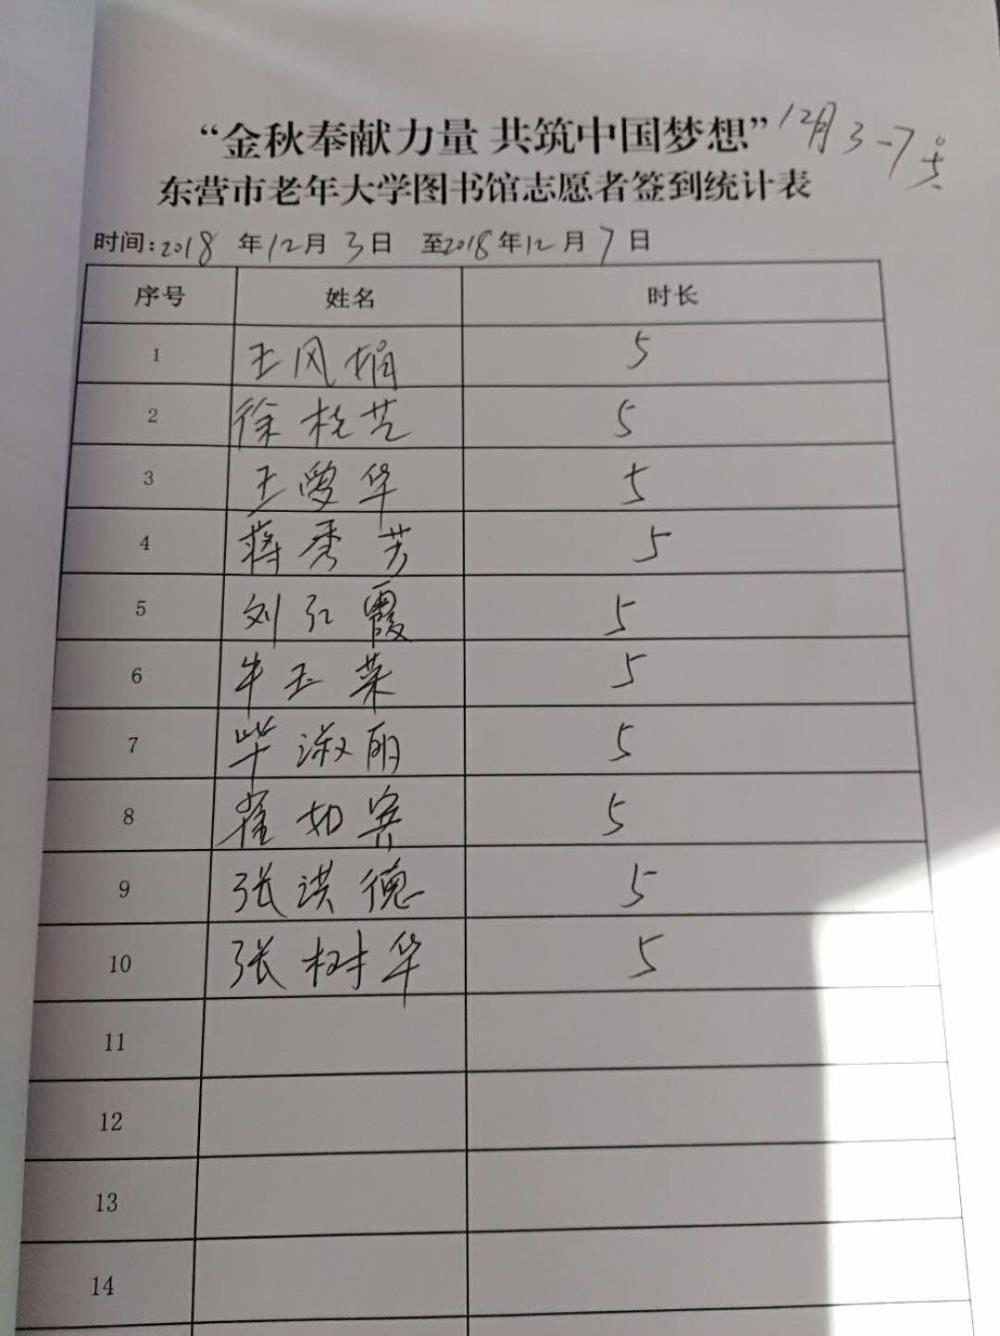 “金秋奉献力量 共筑中国梦想” 12月3-7号
东营市老年大学图书馆志愿者签到统计表
时间:2018年12月3日 至2018年12月7日
序号 姓名 时长
1 王风娟 5
2 徐桂芝 5
3 王爱华 5
4 蒋秀芳 5
5 刘红霞 5
6 牛玉荣 5
7 毕淑丽 5
8 崔如赛 5
9 张洪德 5
10 张树华 5
11
12
13
14